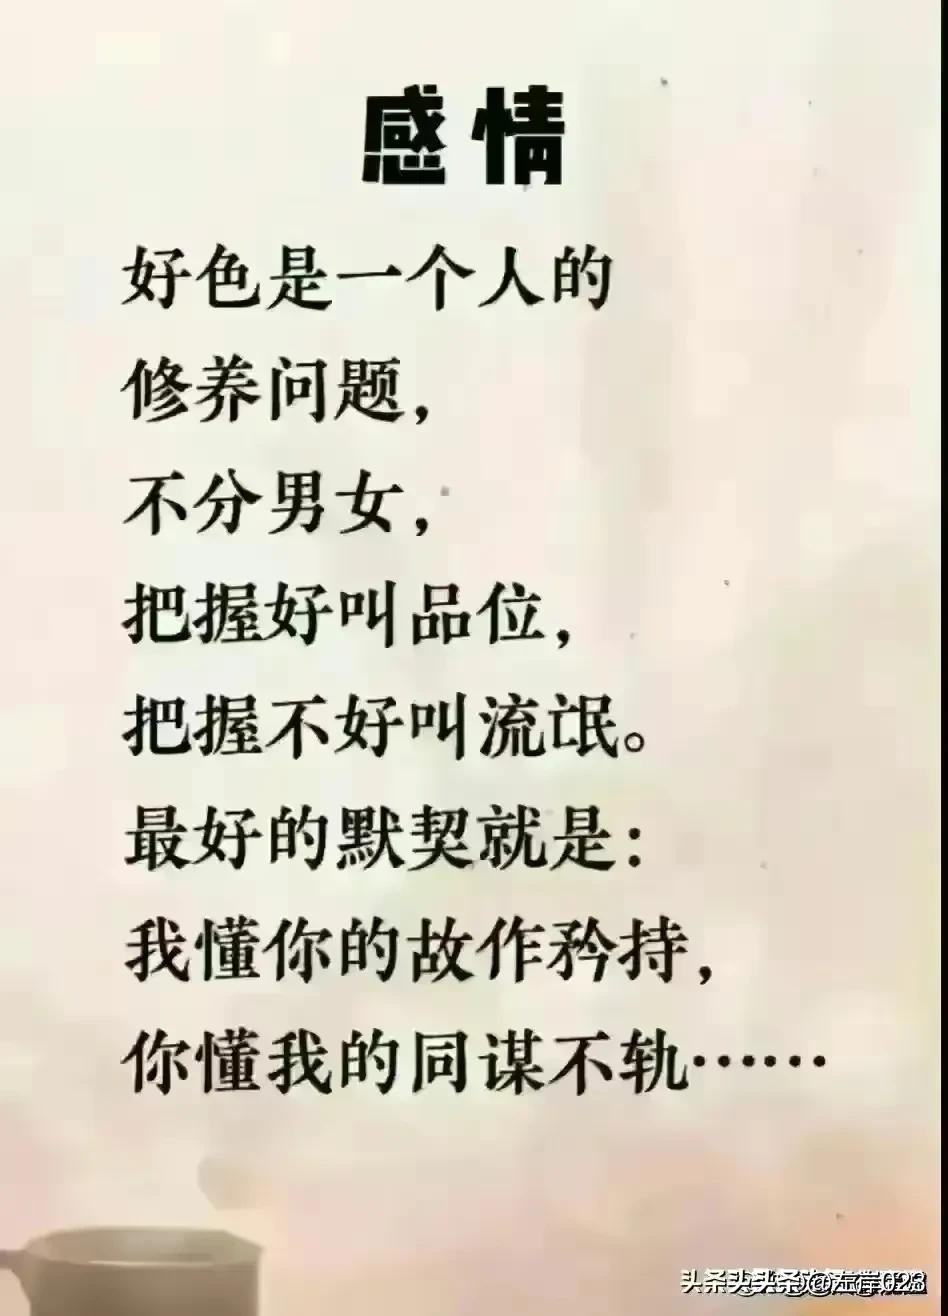 感情
好色是一个人的
修养问题,
不分男女,
把握好叫品位,
把握不好叫流氓。
最好的默契就是:
我懂你的故作矜持,
你懂我的同谋不轨……